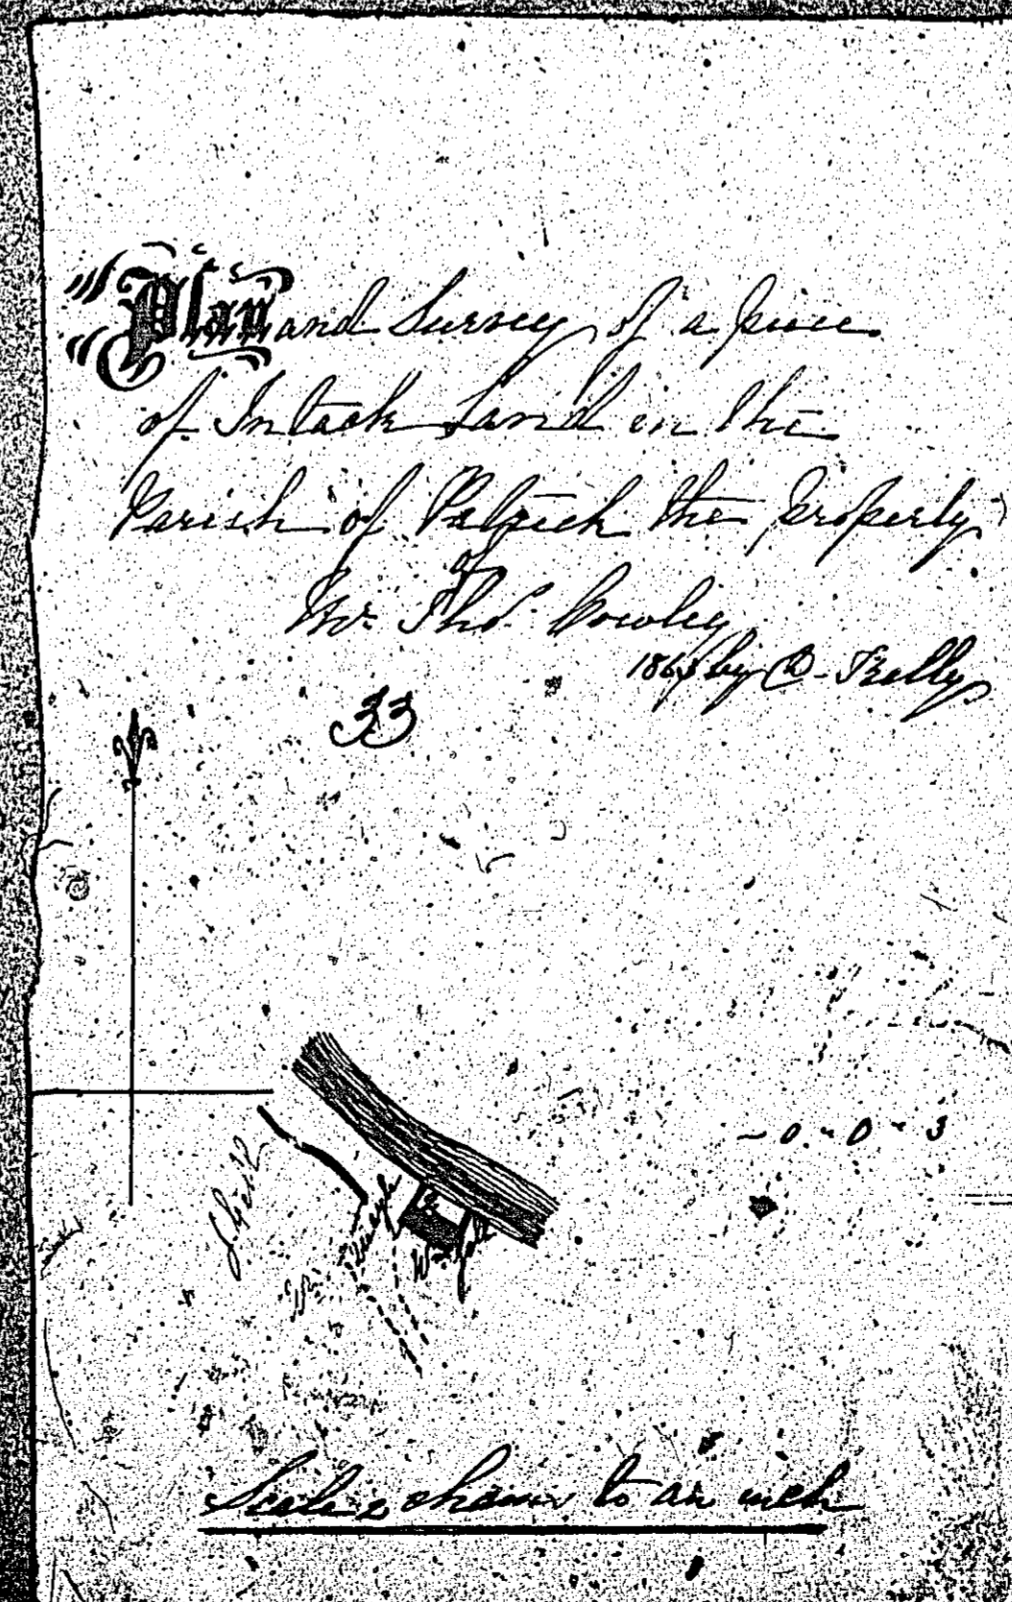 Plan and Survey of a piece
of Intack Land in the
Parish of Patrick the property
of
Mr. Thos. Cowley
by D. Kelly
33
0 - 0 - 3
Quayle
Scale 2 chains to an inch